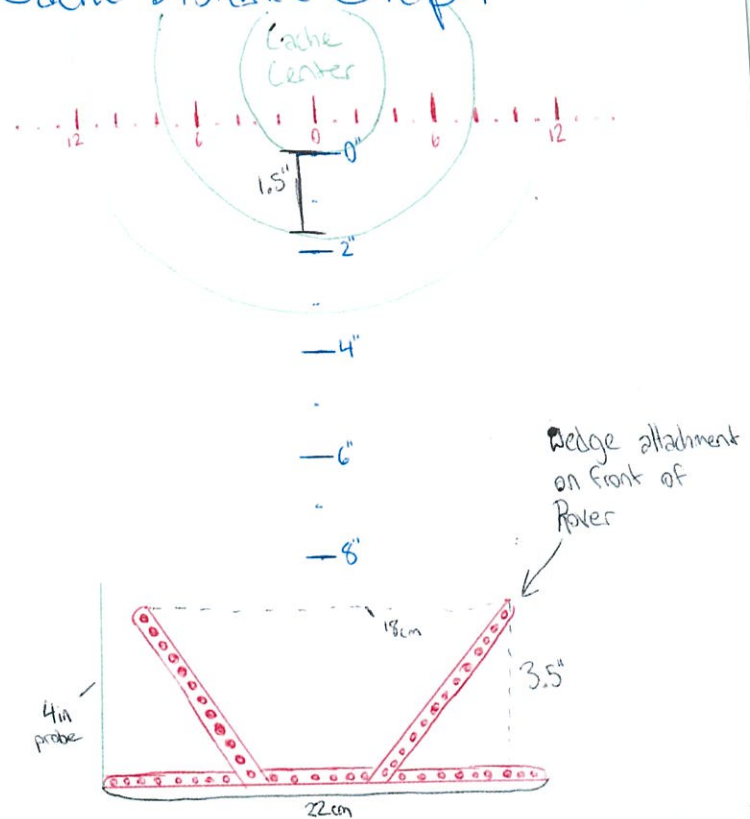 Cache
Center
12 6 0 6 12
0"
1.5"
2"
4"
6"
Wedge attachment
on front of
Rover
8"
18cm
3.5"
4in
probe
22cm